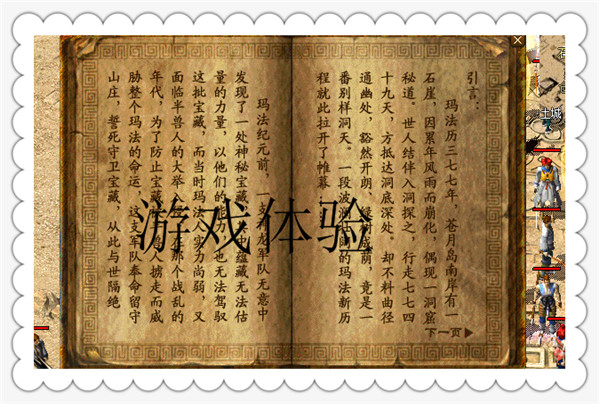 引言：
玛法历三七七年，苍月岛南岸有一
石崖，因累年风雨而崩化，偶现一洞窟
秘道。世人结伴入洞探之，行走七七四
十九天，方抵达洞底深处。却不料曲径
通幽处，豁然开朗、绿树成荫，竟是一
番别样洞天。一段波澜壮阔的玛法新历
程就此拉开了帷幕……
下一页
玛法纪元前，一支龙军队无意中
发现了一处神秘宝藏，其中蕴藏无法估
量的力量，以他们的能力，也无法驾驭
这批宝藏，而当时玛法人实力尚弱，又
面临半兽人的大举入侵，在那个战乱的
年代，为了防止宝藏被半兽人掳走而威
胁整个玛法的命运，这支军队奉命留守
山庄，誓死守卫宝藏，从此与世隔绝
游戏体验
土城